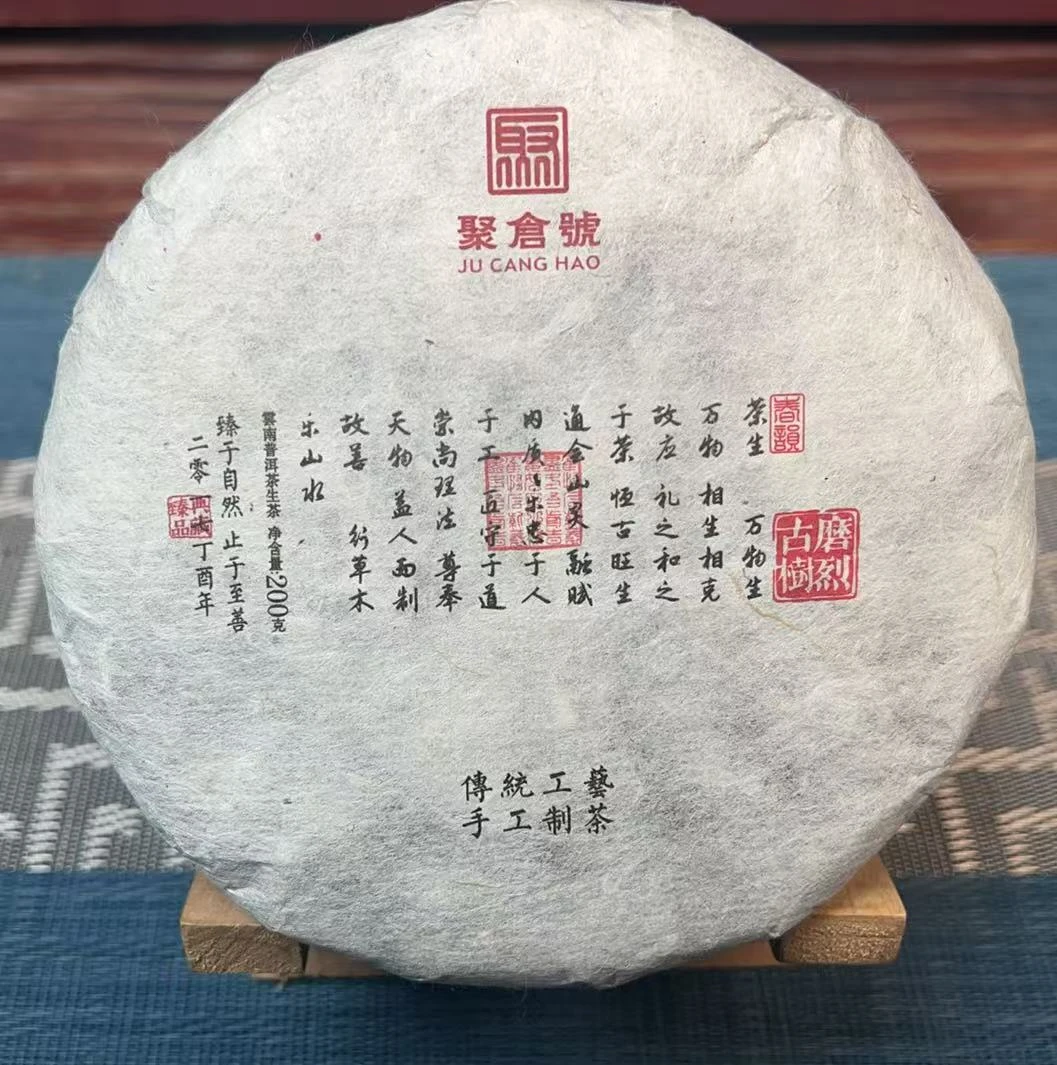 聚倉號
JU CANG HAO
春韻
磨烈
古樹
茶生 万物生
万物 相生相克
故应 礼之和之
于茶 恒古旺生
道合山灵 融赋
内质 乐忠于人
于工 匠守于道
崇尚理法 尊奉
天物 益人而制
故善 衍草木
乐山水
雲南普洱茶生茶 净含量:200克
臻于自然 止于至善
二零一七 丁酉年
典藏
臻品
傳統工藝
手工制茶